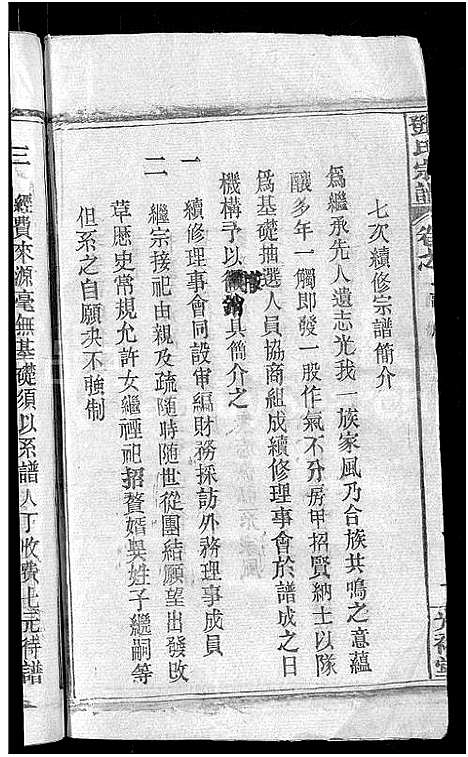 鄧氏宗譜
七次續修宗譜簡介
爲繼承先人遺志光我一族家風乃合族共鳴之意蘊
釀多年一觸即發一股作氣不分房甲招賢納士以隊
爲基礎抽選人員協商組成續修理事會於譜成之日
機構予以 具簡介之
一 續修理事會同設审編財務採訪外務理事成員
二 繼宗接祀由親及疏随時随世從團結願望出發改
草歷史常規允許女繼 祖招贅婚吳姓子繼嗣等
但系之自願决不強制
三 經費來源毫無基礎須以系譜人丁收費上完待譜